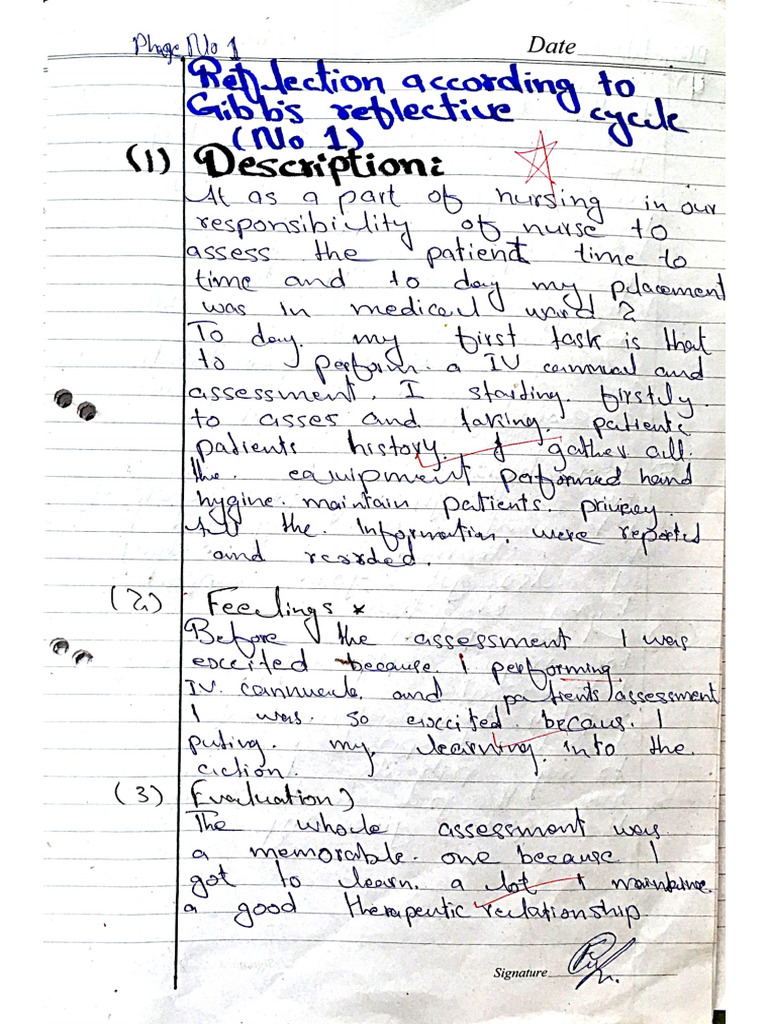 Phage No 1
Date
Reflection according to
Gibbs reflective cycle
(No 1)
(1) Description:
At as a part of nursing in our
responsibility of nurse to
assess the patient time to
time and to day my placement
was in medical ward 2
To day. my first task is that
to perform a IV cannual and
assessment. I starting. firstly.
to asses and taking. patients
patients history. I gather all.
the. equipment performed hand
hygine. maintain patients. privacy.
All the. Information. were reported
and recorded.
(2) Feelings *
Before the assessment I was
excited because. i performing
IV. cannuale. and patients assessment
I was. so excited. becaus. I
puting. my. learning. into the
action.
(3) Evaluation)
The whole assessment was
a memorable. one because I
got to learn. a lot I maintaine.
a good therapeutic relationship.
Signature